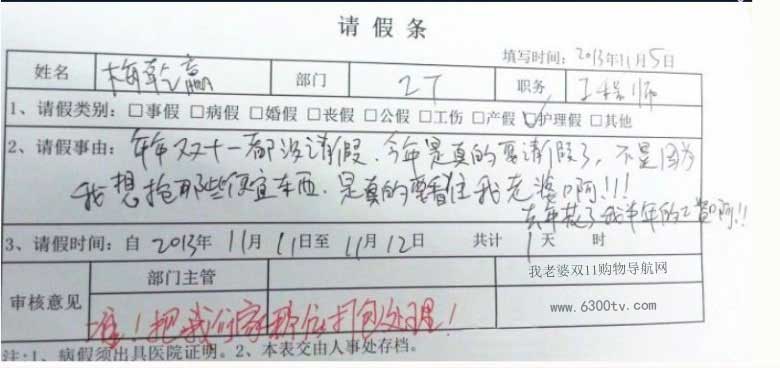 请假条
填写时间：2013年11月5日
姓名 梅乾赢 部门 IT 职务 工程师
1、请假类别：□事假 □病假 □婚假 □丧假 □公假 □工伤 □产假 ☑护理假 □其他
2、请假事由：年年双十一都没请假，今年是真的要请假了，不是因为
我想抢那些便宜东西，是真的要看住我老婆啊!!!
去年花了我半年的工资啊!!
3、请假时间：自 2013年 11月 11日至 11月 12日 共计 1天 时
部门主管
我老婆双11购物导航网
审核意见
www.6300tv.com
准！把我们家那位打包处理！
注：1、病假须出具医院证明。2、本表交由人事处存档。